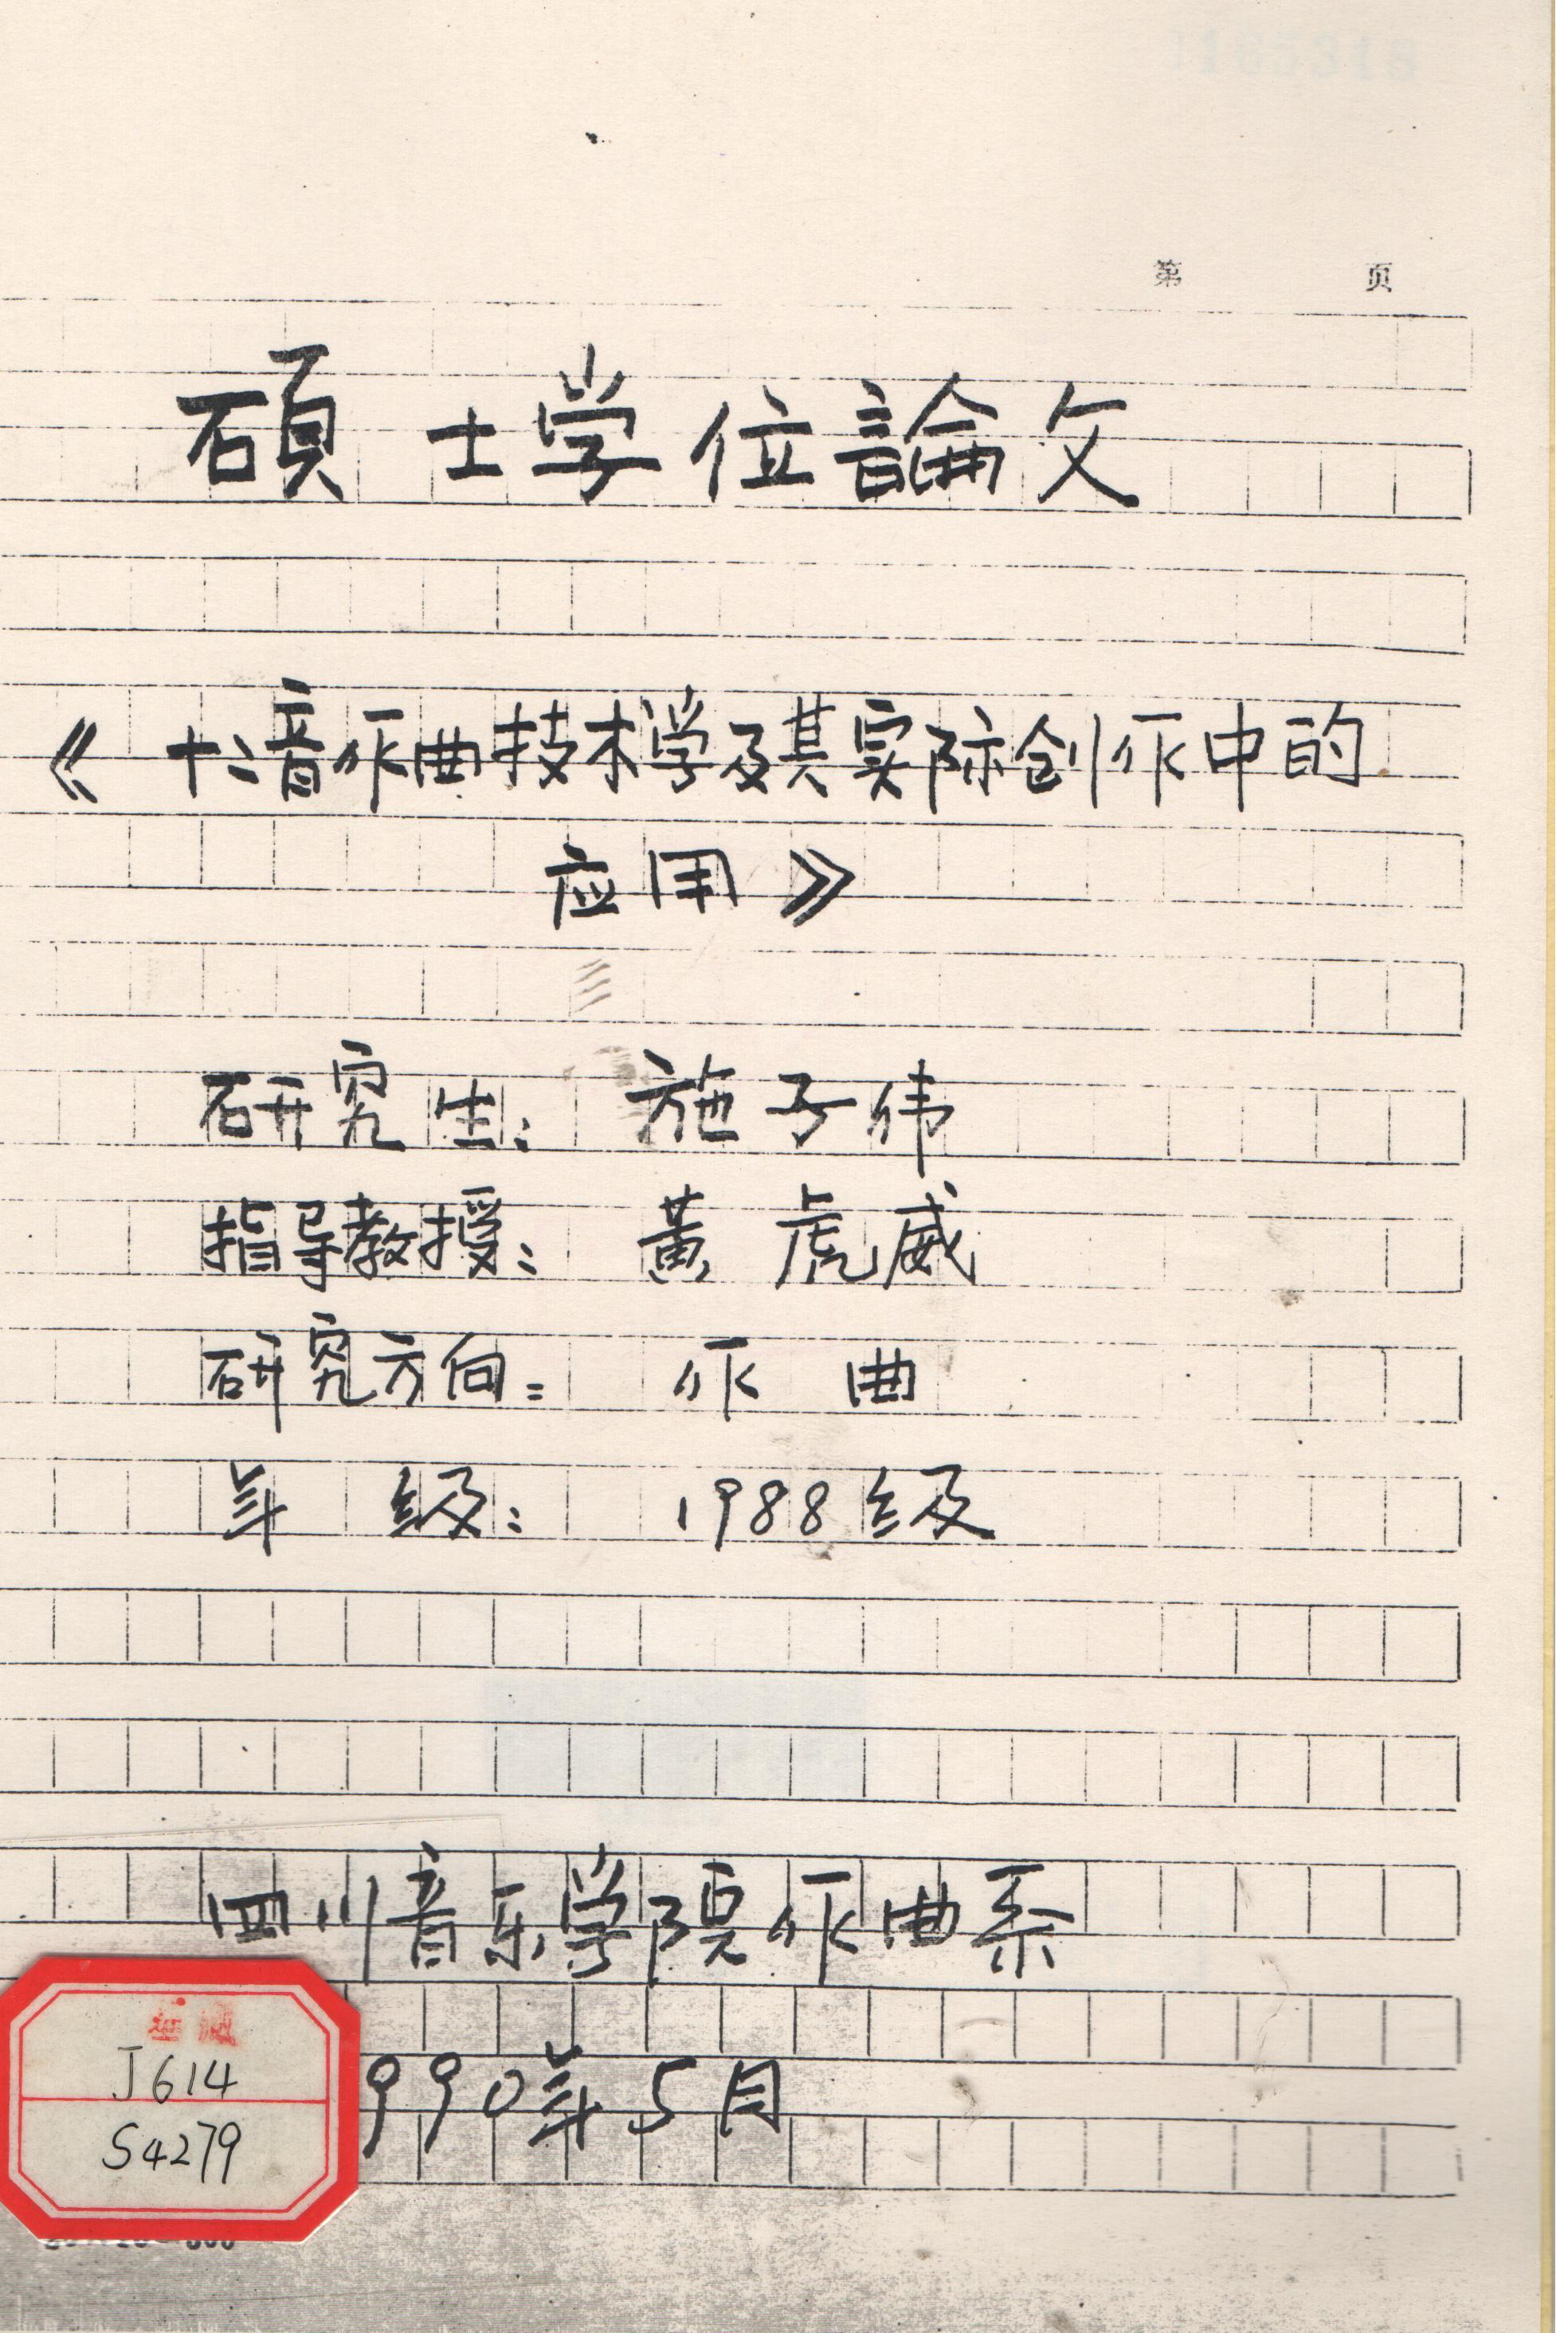 第 页
碩士学位論文
《十二音作曲技术学及其实际创作中的
应用》
研究生：施子伟
指导教授：黄虎威
研究方向：作曲
年级：1988级
四川音乐学院作曲系
990年5月
J614
S4279